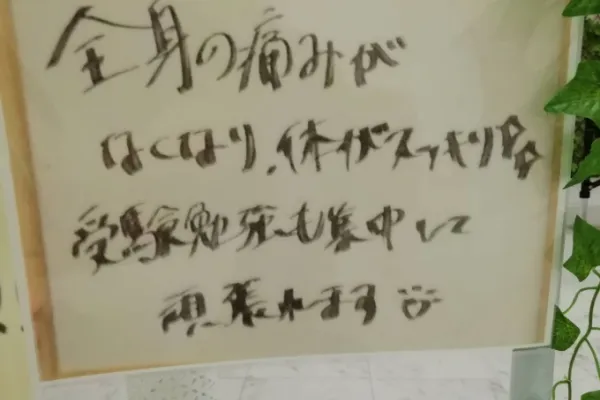 全身の痛みが
なくなり、体がスッキリ☆☆
受験勉強も集中して
頑張れます